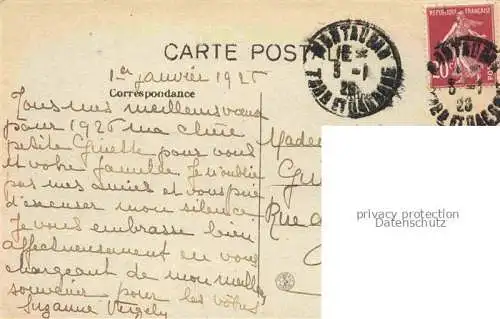 RÉPUBLIQUE FRANÇAISE
CARTE POSTALE
MONTAUBAN
TARN ET GARONNE
MONTAUBAN
TARN ET GARONNE
1er janvier 1926
Correspondance
Tous mes meilleurs vœux
pour 1926 ma chère
petite Ginette pour vous
et votre famille Je n'oublie
pas mes amies et vous prie
d'excuser mon silence
Je vous embrasse bien
affectueusement en vous
chargeant de mon meilleur
souvenir pour les vôtres
Suzanne Vergely
Made
Gu
Rue
privacy protection
Datenschutz